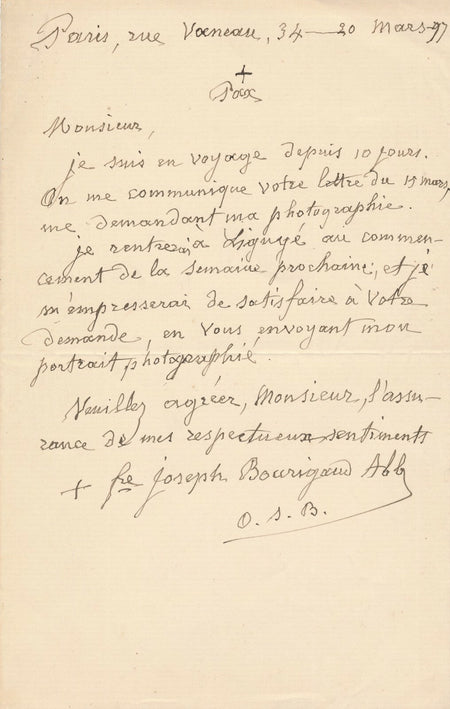 Paris, rue Vaneau, 34 — 20 Mars 97
+
Pax
Monsieur,
je suis en voyage depuis 10 jours.
On me communique votre lettre du 15 mars,
me demandant ma photographie.
je rentrerai à Ligugé au commen-
cement de la semaine prochaine, et je
m'empresserai de satisfaire à votre
demande, en vous envoyant mon
portrait photographié.
Veuillez agréer, Monsieur, l'assu-
rance de mes respectueux sentiments
+ fre Joseph Bourigaud Abb
O. S. B.